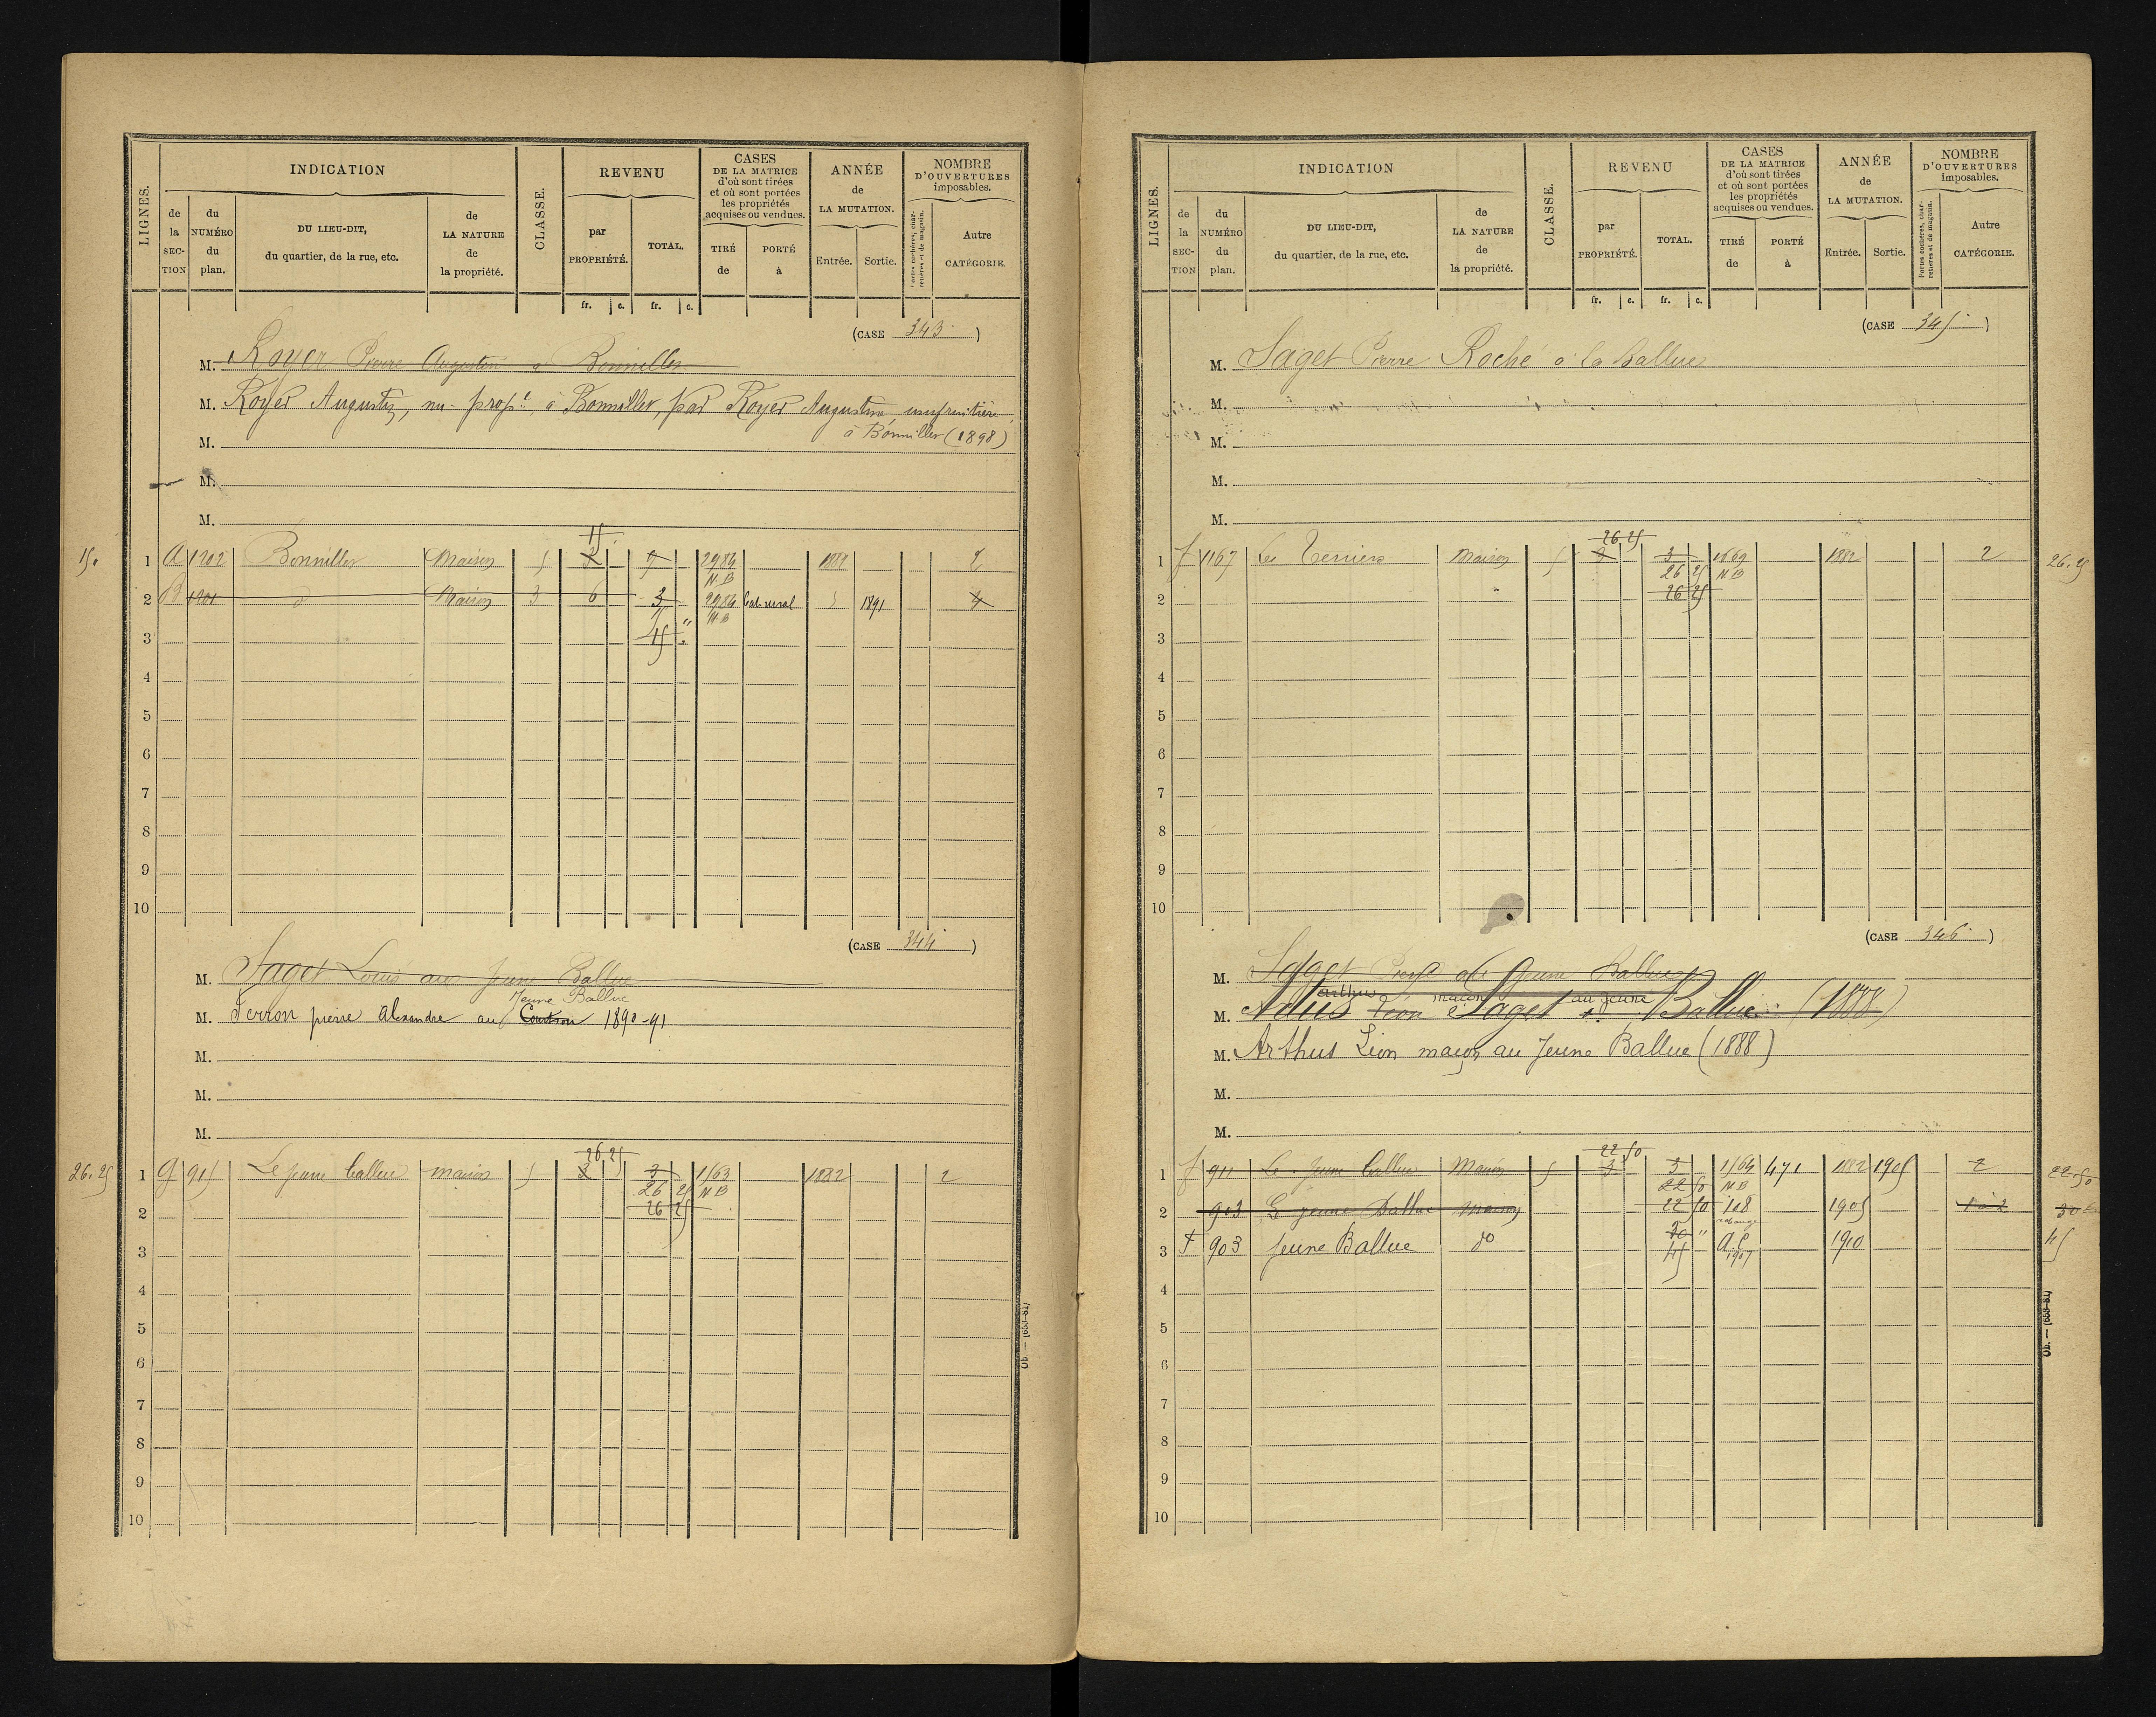 LIGNES.
INDICATION
de la SEC-TION
du NUMÉRO du plan.
DU LIEU-DIT, du quartier, de la rue, etc.
de LA NATURE de la propriété.
CLASSE.
REVENU
par PROPRIÉTÉ.
TOTAL.
CASES DE LA MATRICE d'où sont tirées et où sont portées les propriétés acquises ou vendues.
TIRÉ de
PORTÉ à
ANNÉE de LA MUTATION.
Entrée.
Sortie.
NOMBRE D'OUVERTURES imposables.
Portes cochères, char-retières et de magasin.
Autre CATÉGORIE.
fr. c. fr. c.
(CASE 343)
M. Royer Pierre Augustin à Bonniller
M. Royer Augustin, nu-propre, à Bonniller, par Royer Augustine usufruitière
à Bonniller (1898)
M.
M.
M.
15
15. 1 A 1202 Bonniller Maison 5 3 9 2986 1881 2
N B
2 B 1201 d Maison 3 6 3 2986 1891 4
N B
3 15
4
5
6
7
8
9
10
(CASE 344)
M. Saget Louis au Jeune Ballue
Jeune Ballue
M. Ferron pierre alexandre au Coutron 1890-91
M.
M.
M.
26 25
26.25 1 G 915 Le jeune ballue maison 5 3 3 1163 1882 2
26 25 N B
2 26 25
3
4
5
6
7
8
9
10
LIGNES.
INDICATION
de la SEC-TION
du NUMÉRO du plan.
DU LIEU-DIT, du quartier, de la rue, etc.
de LA NATURE de la propriété.
CLASSE.
REVENU
par PROPRIÉTÉ.
TOTAL.
CASES DE LA MATRICE d'où sont tirées et où sont portées les propriétés acquises ou vendues.
TIRÉ de
PORTÉ à
ANNÉE de LA MUTATION.
Entrée.
Sortie.
NOMBRE D'OUVERTURES imposables.
Portes cochères, char-retières et de magasin.
Autre CATÉGORIE.
fr. c. fr. c.
(CASE 345)
M. Saget Pierre Roché à la ballue
M.
M.
M.
M.
26 25
1 f 1167 Les Terriers Maison 5 3 3 1169 1882 2 26.25
26 25 N B
2 26 25
3
4
5
6
7
8
9
10
(CASE 346)
M. Saget au Jeune Ballue
arthus maçon au Jeune
M. Léon Saget Ballue (1888)
M. Arthus Léon maçon au Jeune Ballue (1888)
M.
M.
22 50
1 f 911 Le Jeune ballue Maison 5 3 3 1164 471 1882 1905 2 22.50
22 50 N B
2 903 Le jeune Ballue maison 22 50 108 1905 1 à 2 30
30 "
3 f 903 Jeune Ballue do 45 a.c 1907 1910 45
4
5
6
7
8
9
10